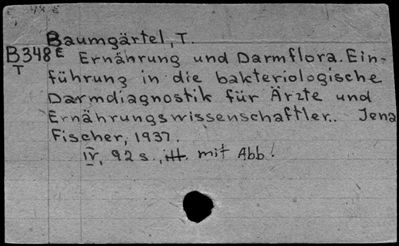 Baumgärtel, T.
B348E Ernährung und Darmflora. Ein-
T führung in die bakteriologische
Darmdiagnostik für Ärzte und
Ernährungswissenschaftler. Jena
Fischer, 1937.
IV, 92 s., mit Abb.